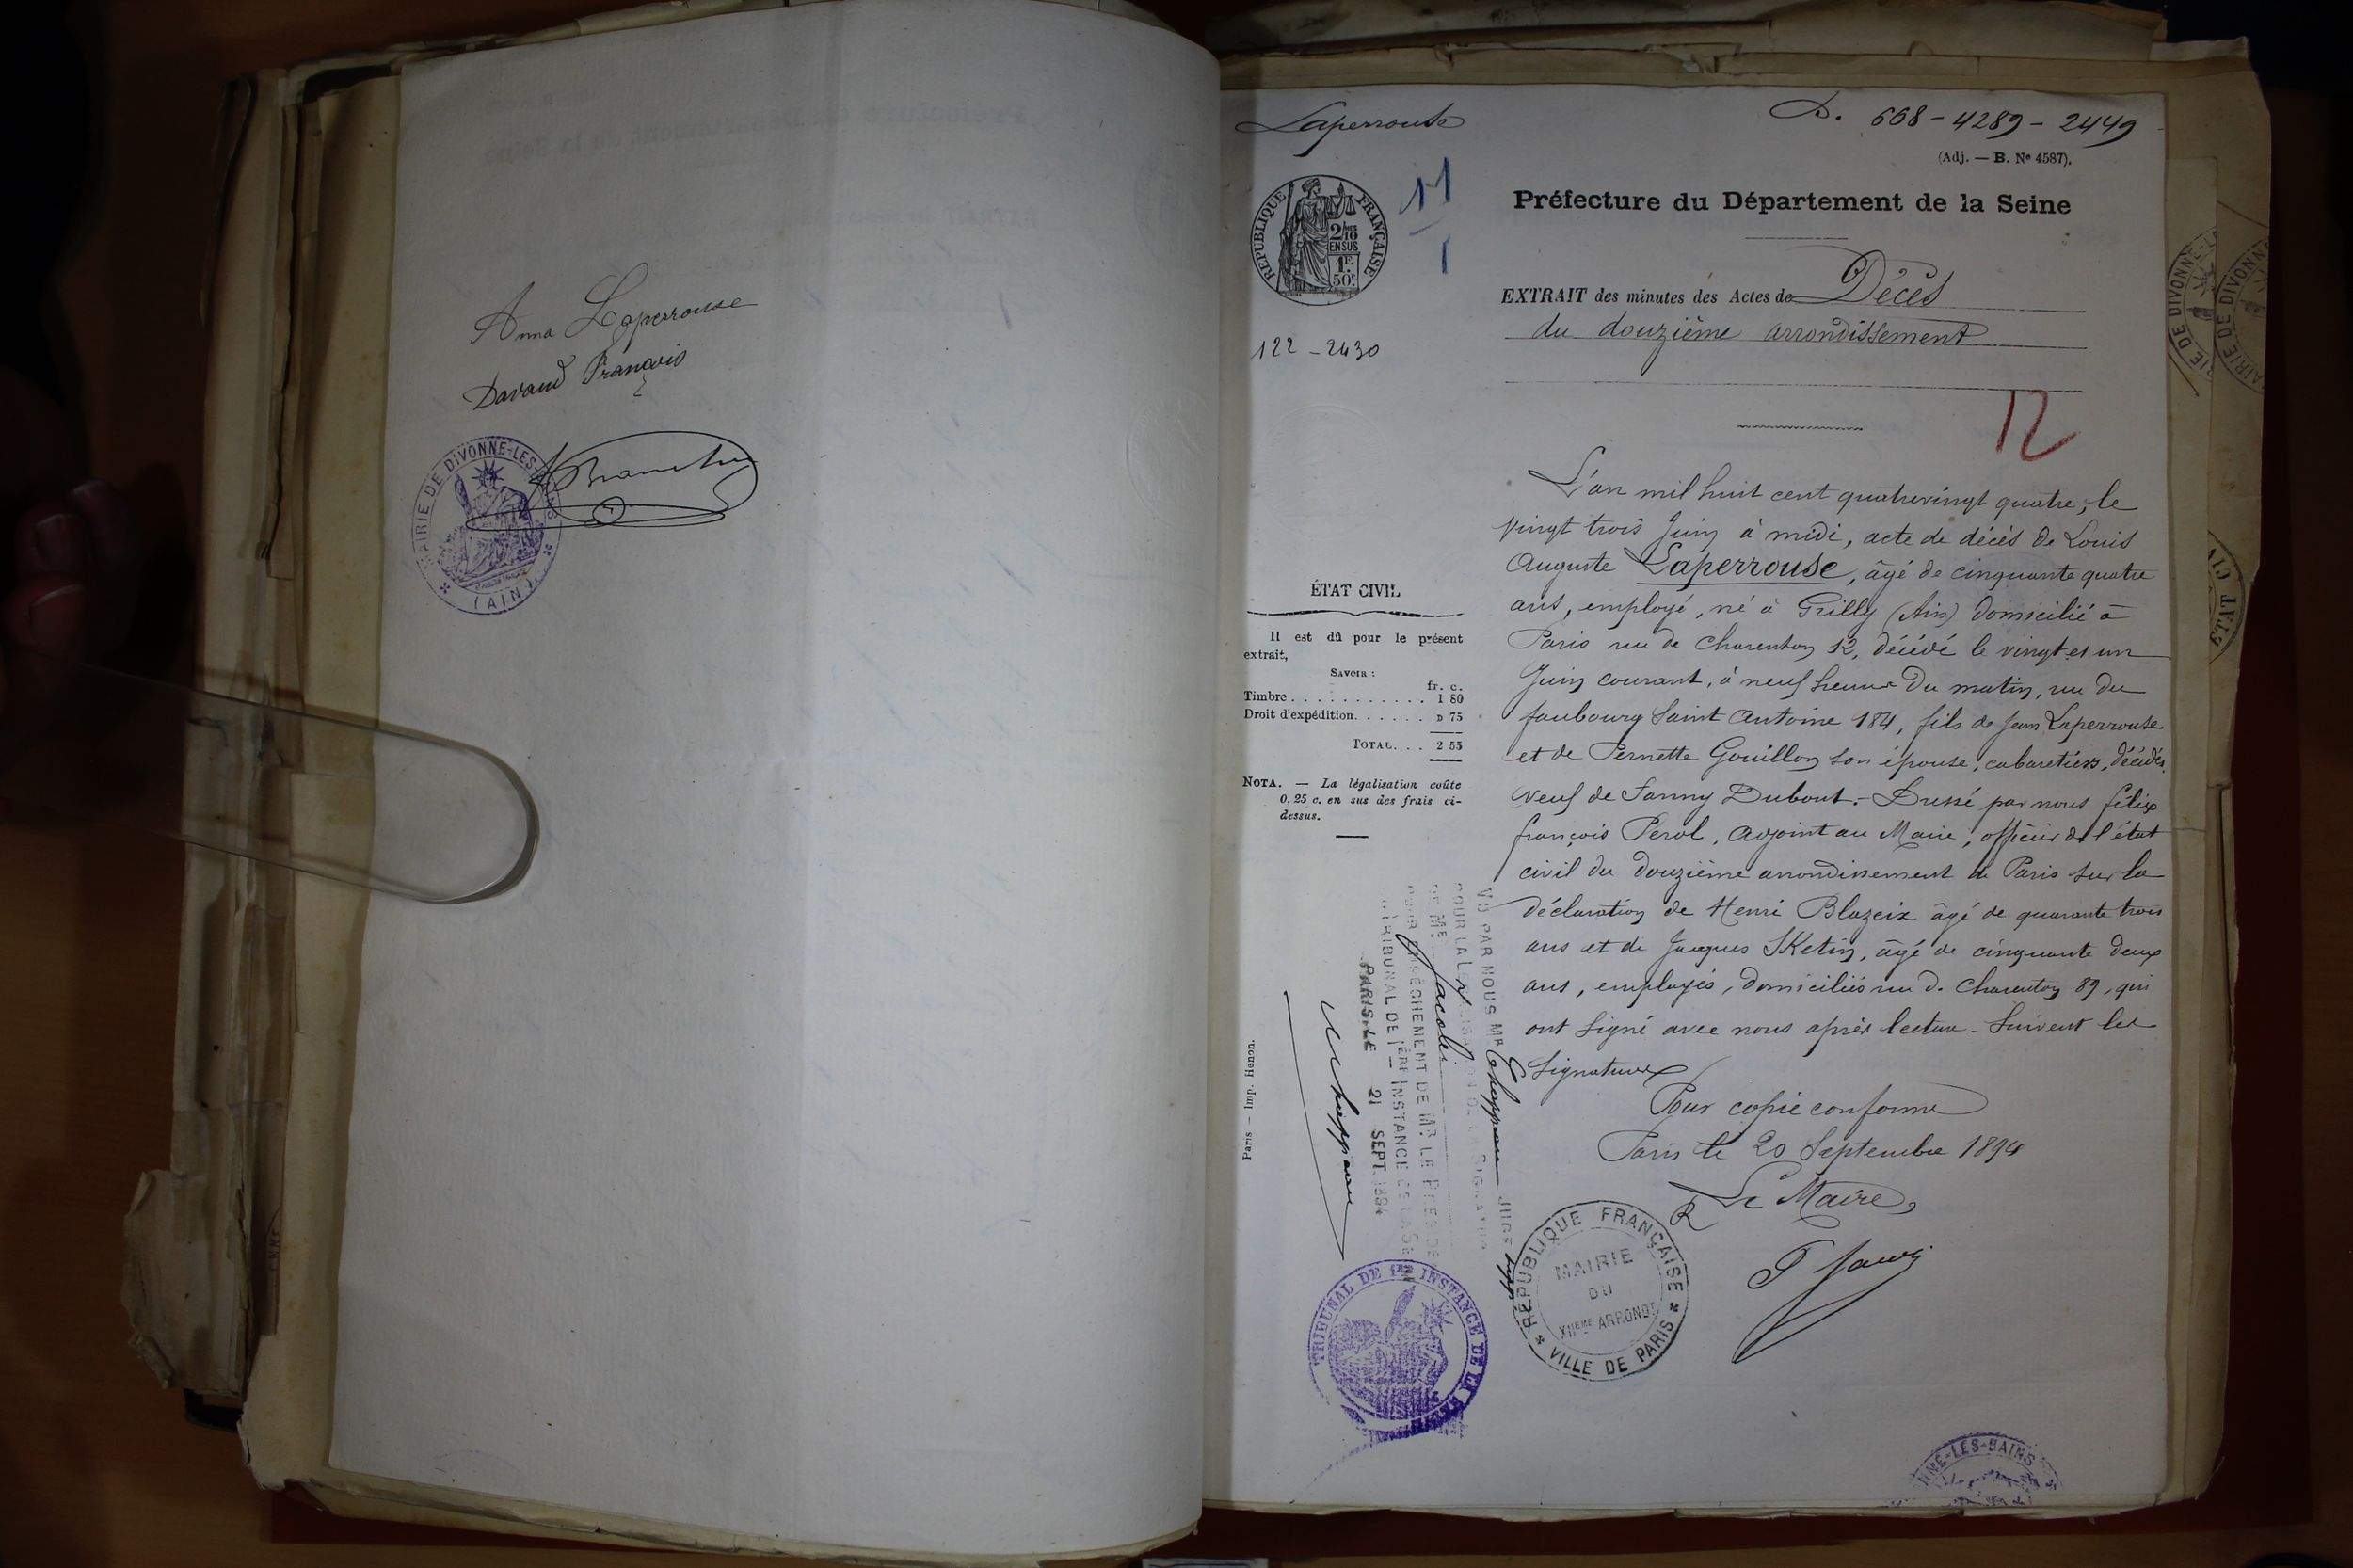 Anna Laperrouse
Davaud François
MAIRIE DE DIVONNE-LES-BAINS
(AIN)
Laperrouse
D. 668-4289-2449
(Adj. — B. Nº 4587).
RÉPUBLIQUE FRANÇAISE
2/10
EN SUS
1F.
50c
11
1
122-2430
Préfecture du Département de la Seine
EXTRAIT des minutes des Actes de Décès
du douzième arrondissement
12
ÉTAT CIVIL
Il est dû pour le présent
extrait,
SAVOIR :
fr. c.
Timbre . . . . . . . . . . . . 1 80
Droit d'expédition. . . . . . » 75
TOTAL. . . 2 55
NOTA. — La légalisation coûte
0,25 c. en sus des frais ci-
dessus.
Paris — Imp. Henon.
L'an mil huit cent quatrevingt quatre, le
vingt trois Juin à midi, acte de décès de Louis
Auguste Laperrouse, âgé de cinquante quatre
ans, employé, né à Grilly (Ain) domicilié à
Paris rue de Charenton 12, décédé le vingt et un
Juin courant, à neuf heures du matin, rue du
faubourg Saint Antoine 184, fils de Jean Laperrouse
et de Pernette Gouillon son épouse, cabaretiers, décédés
veuf de Fanny Dubout.- Dressé par nous félix
françois Perol, adjoint au Maire, officier de l'état
civil du douzième arrondissement de Paris sur la
déclaration de Henri Blazeix âgé de quarante trois
ans et de Jacques SKetin, âgé de cinquante deux
ans, employés, domiciliés rue de Charenton 89, qui
ont signé avec nous après lecture. Suivent les
signatures
Pour copie conforme
Paris le 20 Septembre 1894
Le Maire,
VU PAR NOUS MR JUGE
POUR LA LÉGALISATION DE LA SIGNATURE
DE ME
POUR EMPÊCHEMENT DE MR LE PRÉSIDENT
TRIBUNAL DE 1ÈRE INSTANCE DE LA SEINE
PARIS, LE 21 SEPT. 1894
TRIBUNAL DE 1ERE INSTANCE DE LA SEINE
RÉPUBLIQUE FRANÇAISE
MAIRIE
DU
XIIEME ARRONDT
VILLE DE PARIS
NNE-LES-BAINS
RIE DE DIVONNE-LE
AIRIE DE DIVONN
ETAT CIV